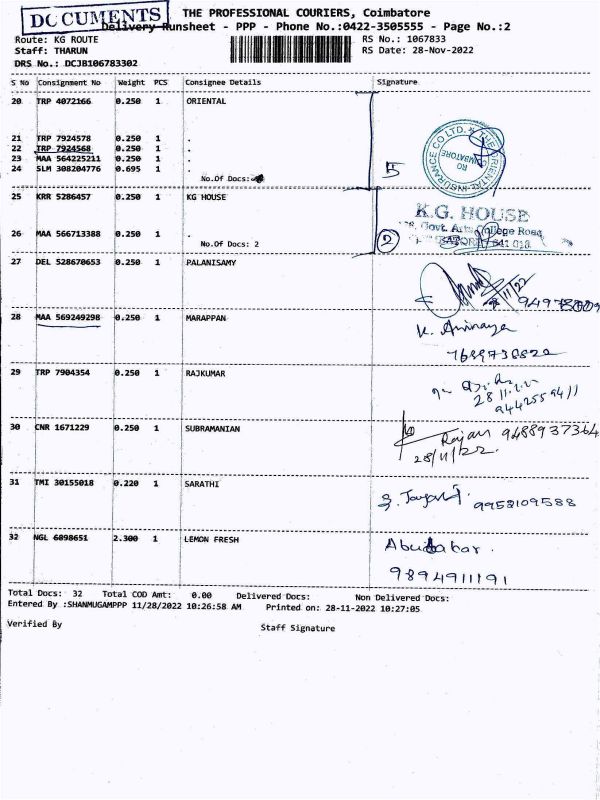 DOCUMENTS
THE PROFESSIONAL COURIERS, Coimbatore
Delivery Runsheet - PPP - Phone No.:0422-3505555 - Page No.:2
Route: KG ROUTE RS No.: 1067833
Staff: THARUN RS Date: 28-Nov-2022
DRS No.: DCJB106783302
S No Consignment No Weight PCS Consignee Details Signature
20 TRP 4072166 0.250 1 ORIENTAL
21 TRP 7924578 0.250 1 .
22 TRP 7924568 0.250 1 .
23 MAA 564225211 0.250 1 .
24 SLM 308204776 0.695 1 .
No.Of Docs:
5
THE ORIENTAL INSURANCE CO LTD.
RO
COIMBATORE
25 KRR 5286457 0.250 1 KG HOUSE
K.G. HOUSE
Govt. Arts College Road
26 MAA 566713388 0.250 1 .
No.Of Docs: 2
2
641 018
27 DEL 528670653 0.250 1 PALANISAMY
28 MAA 569249298 0.250 1 MARAPPAN
29 TRP 7904354 0.250 1 RAJKUMAR
28 11
30 CNR 1671229 0.250 1 SUBRAMANIAN
Rajan 9488937364
28/11/22.
31 TMI 30155018 0.220 1 SARATHI
9952109588
32 NGL 6898651 2.300 1 LEMON FRESH
9894911191
Total Docs: 32 Total COD Amt: 0.00 Delivered Docs: Non Delivered Docs:
Entered By :SHANMUGAMPPP 11/28/2022 10:26:58 AM Printed on: 28-11-2022 10:27:05
Verified By Staff Signature